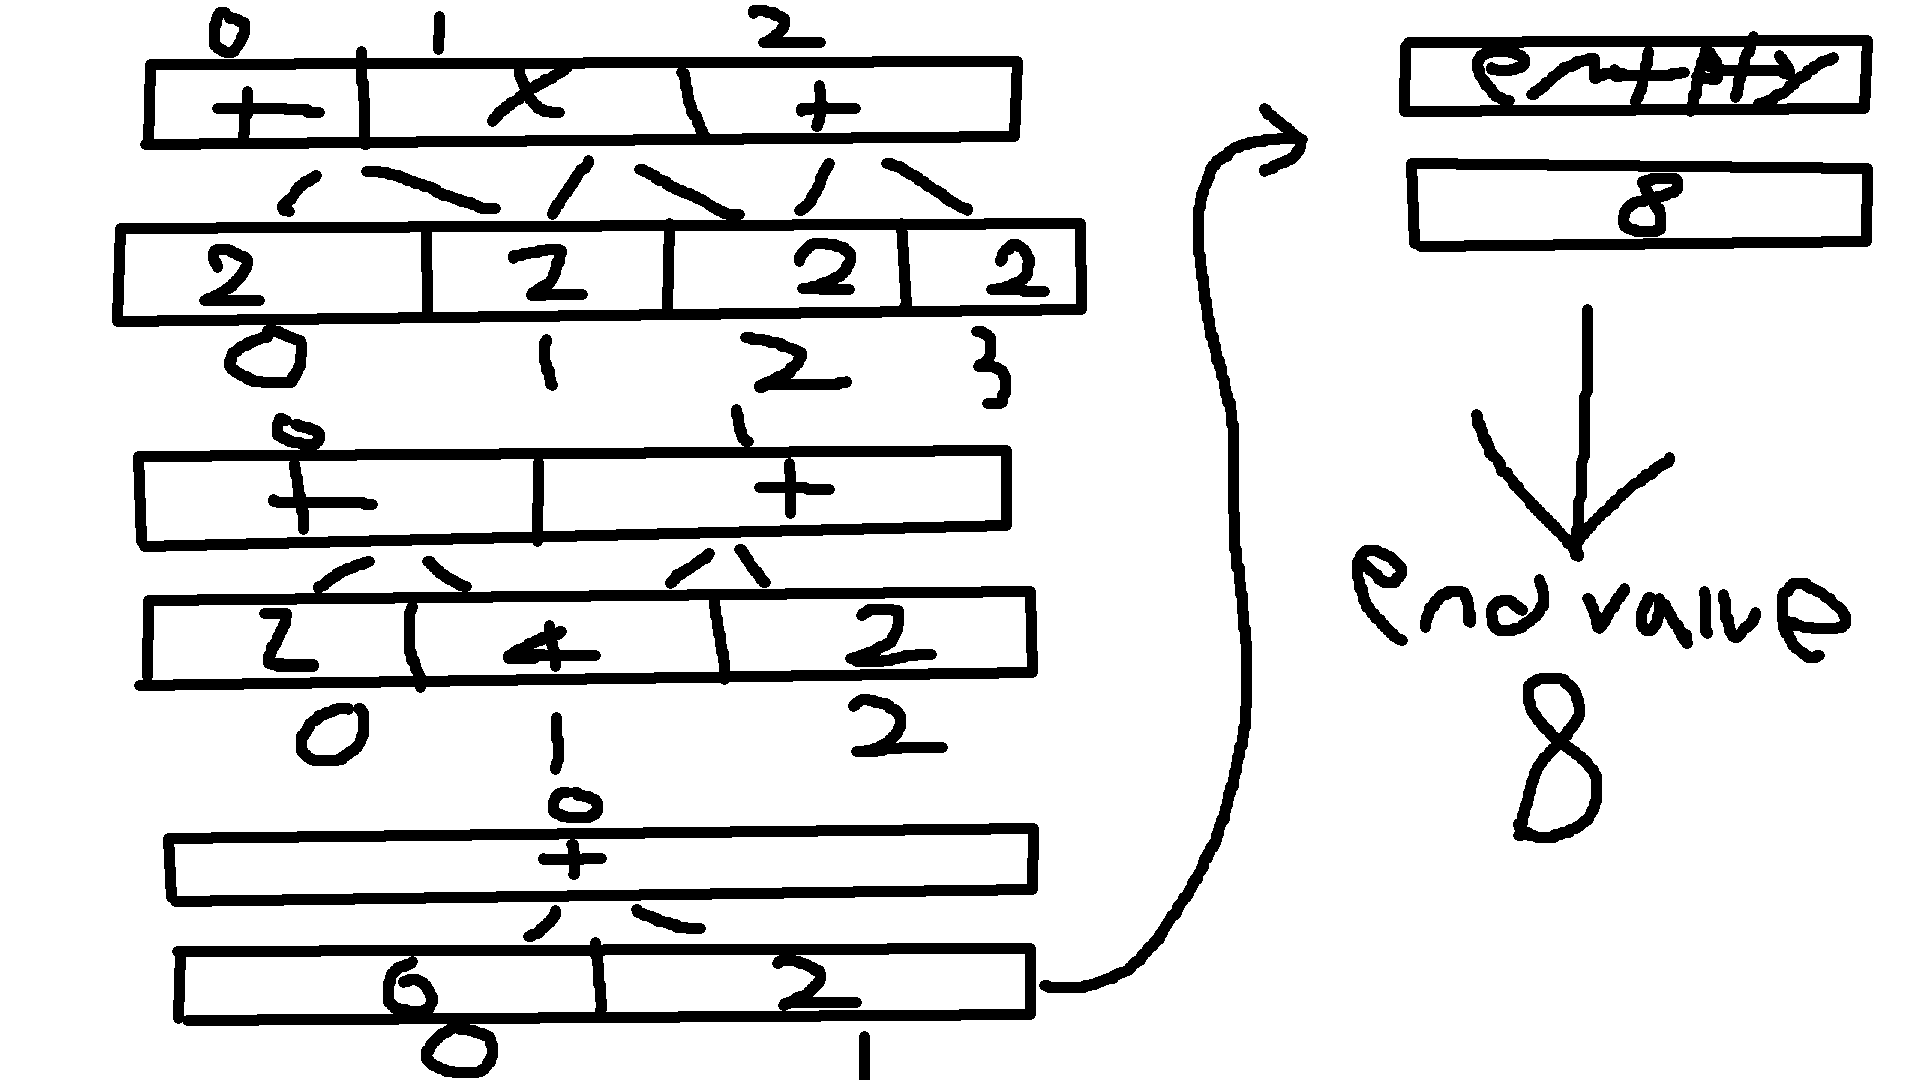 0 1 2
+ x +
2 2 2 2
0 1 2 3
0 1
+ +
2 4 2
0 1 2
0
+
6 2
0 1
empty
8
end value
8